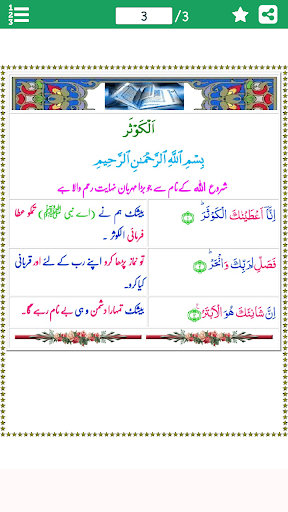 1 2 3
3 /3
اَلْكَوْثَر
بِسْمِ اللَّهِ الرَّحْمٰنِ الرَّحِيْمِ
شروع اللہ کے نام سے جو بڑا مہربان نہایت رحم والا ہے
اِنَّآ اَعْطَيْنٰكَ الْكَوْثَرَ ؕ ﴿۱﴾
بیشک ہم نے (اے نبی ﷺ) تمکو عطا
فرمائی الکوثر ۔
فَصَلِّ لِرَبِّكَ وَانْحَرْ ؕ ﴿۲﴾
تو نماز پڑھا کرو اپنے رب کے لئے اور قربانی
کیا کرو۔
اِنَّ شَانِئَكَ هُوَ الْاَبْتَرُ ﴿۳﴾
بیشک تمہارا دشمن وہی بے نام رہے گا۔